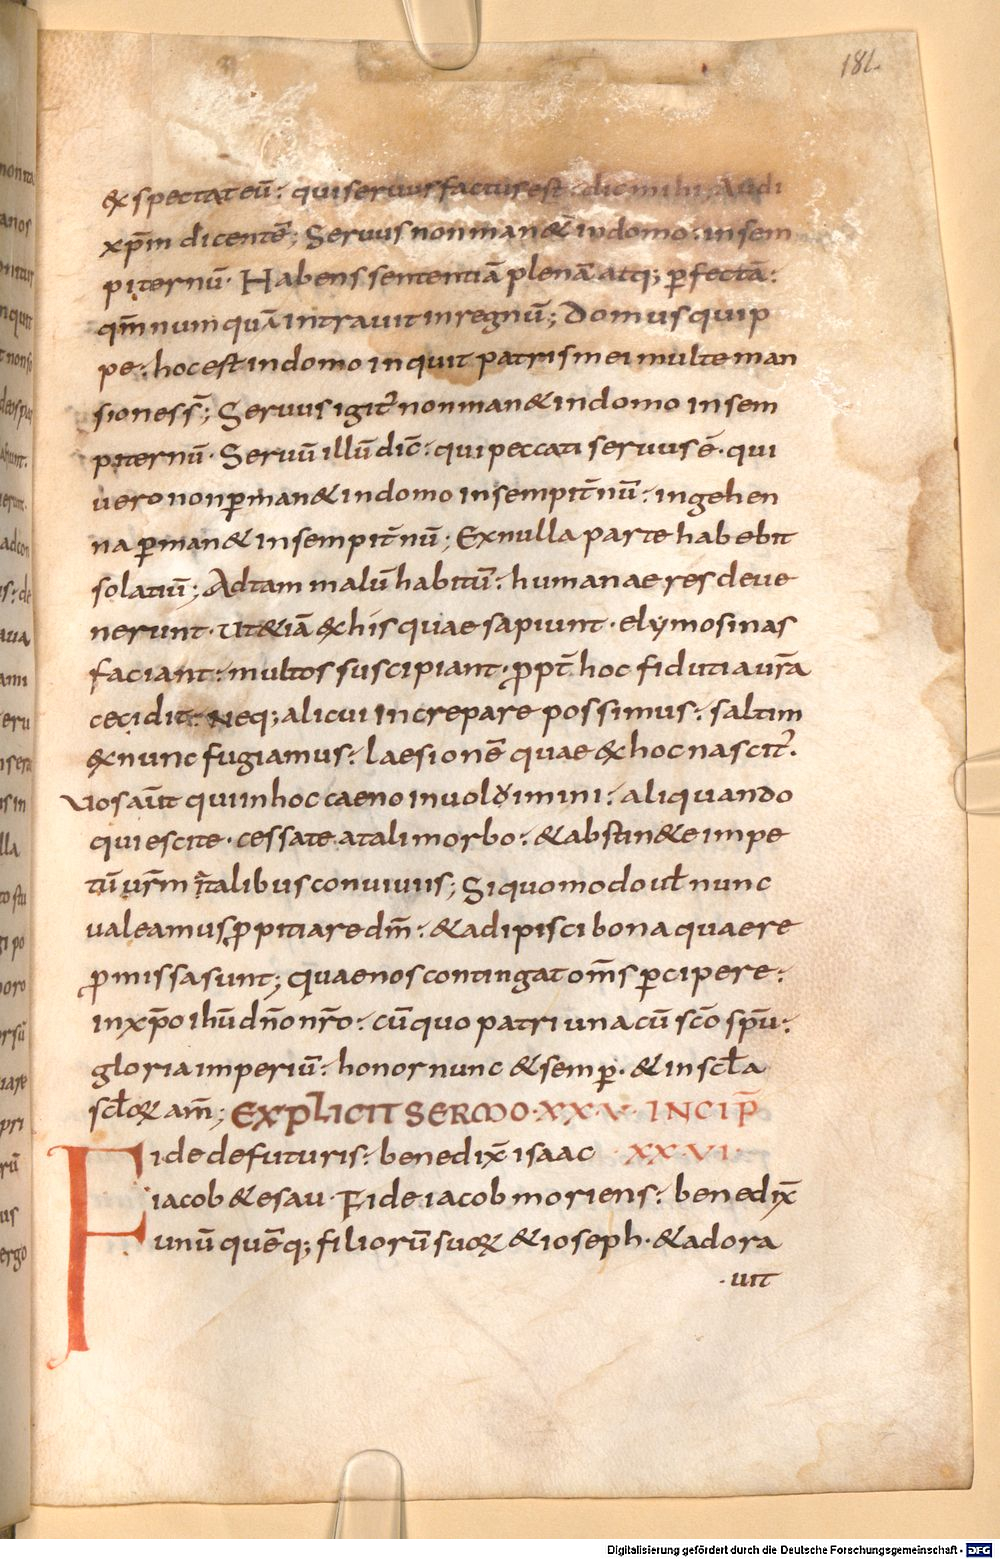 181.
&spectat eū: qui servus factus est: dic mihi; Audi
xp̄m dicentē; Servus non man& in domo: in sem
piternū· Habens sententiā plenā atq; p̄fectā:
qm̄ numquā intravit in regnū; Domus quip
pe: hoc est in domo inquit patris mei multe man
siones s̄; Servus igit̄ non man& in domo in sem
piternū· Servū illū dic̄: qui peccati servus ē· qui
vero non p̄man& in domo in sempit̄nū: in gehen
na p̄man& in sempit̄nū; Ex nulla parte habebit
solatiū; Ad tam malū habitū: humanae res deve
nerunt· ut &iā &his quae sapiunt· elymosinas
faciant: multos suscipiant· p̄pt̄ hoc fidutia ur̄a
cecidit: Neq; alicui increpare possimus: saltim
&nunc fugiamus: laesionē quae &hoc nascit̄·
Vos aūt qui in hoc caeno involvimini: aliquando
quiescite· cessate a tali morbo: & abstin&e impe
tū ur̄m īt̄ alibus conviviis; Si quo modo vl̄ nunc
valeamus p̄pitiare dm̄: & adipisci bona quaere
p̄missa sunt; quae nos contingat om̄s p̄cipere:
in xp̄o ihū dn̄o nr̄o: cū quo patri una cū sc̄o sp̄u:
gloria imperiū: honor nunc & semp̄· & in scl̄a
scl̄oꝝ am̄; EXPLICIT SERMO·XX·V· INCIP̄
Fide de futuris: benedix̄ isaac XX·VI·
iacob & esau· Fide iacob moriens: benedix̄
unū quēq; filiorū suoꝝ & ioseph· & adora
·vit
Digitalisierung gefördert durch die Deutsche Forschungsgemeinschaft - DFG